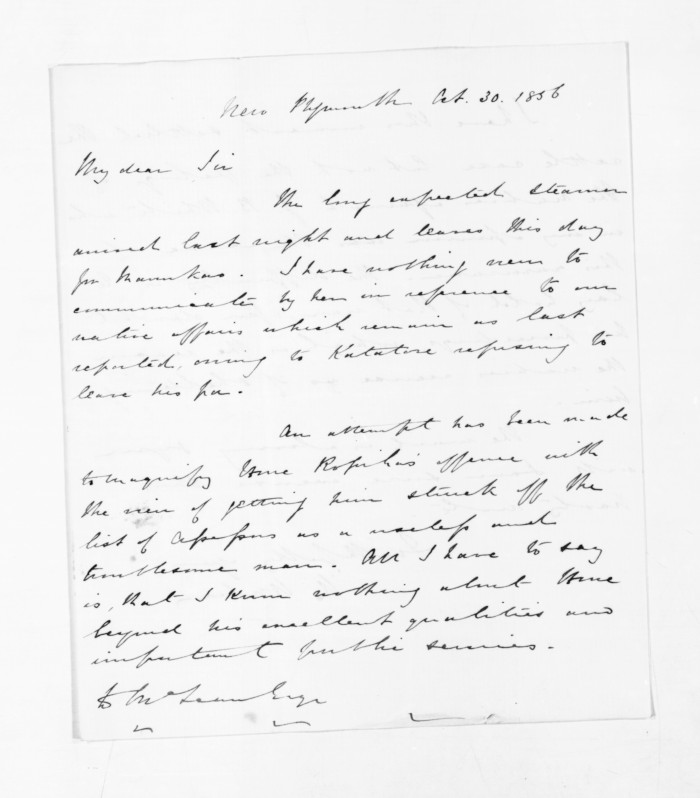 New Plymouth Oct. 30. 1856
My dear Sir
The long expected steamer
arrived last night and leaves this day
for Manukau. I have nothing new to
communicate by her in reference to our
native affairs which remain as last
reported, owing to Katatore refusing to
leave his pa.
An attempt has been made
to magnify Hone Ropiha's offence with
the view of getting him struck off the
list of Assessors as a useless and
troublesome man. All I have to say
is, that I know nothing about Hone
beyond his excellent qualities and
important public services.
McLean Esqr